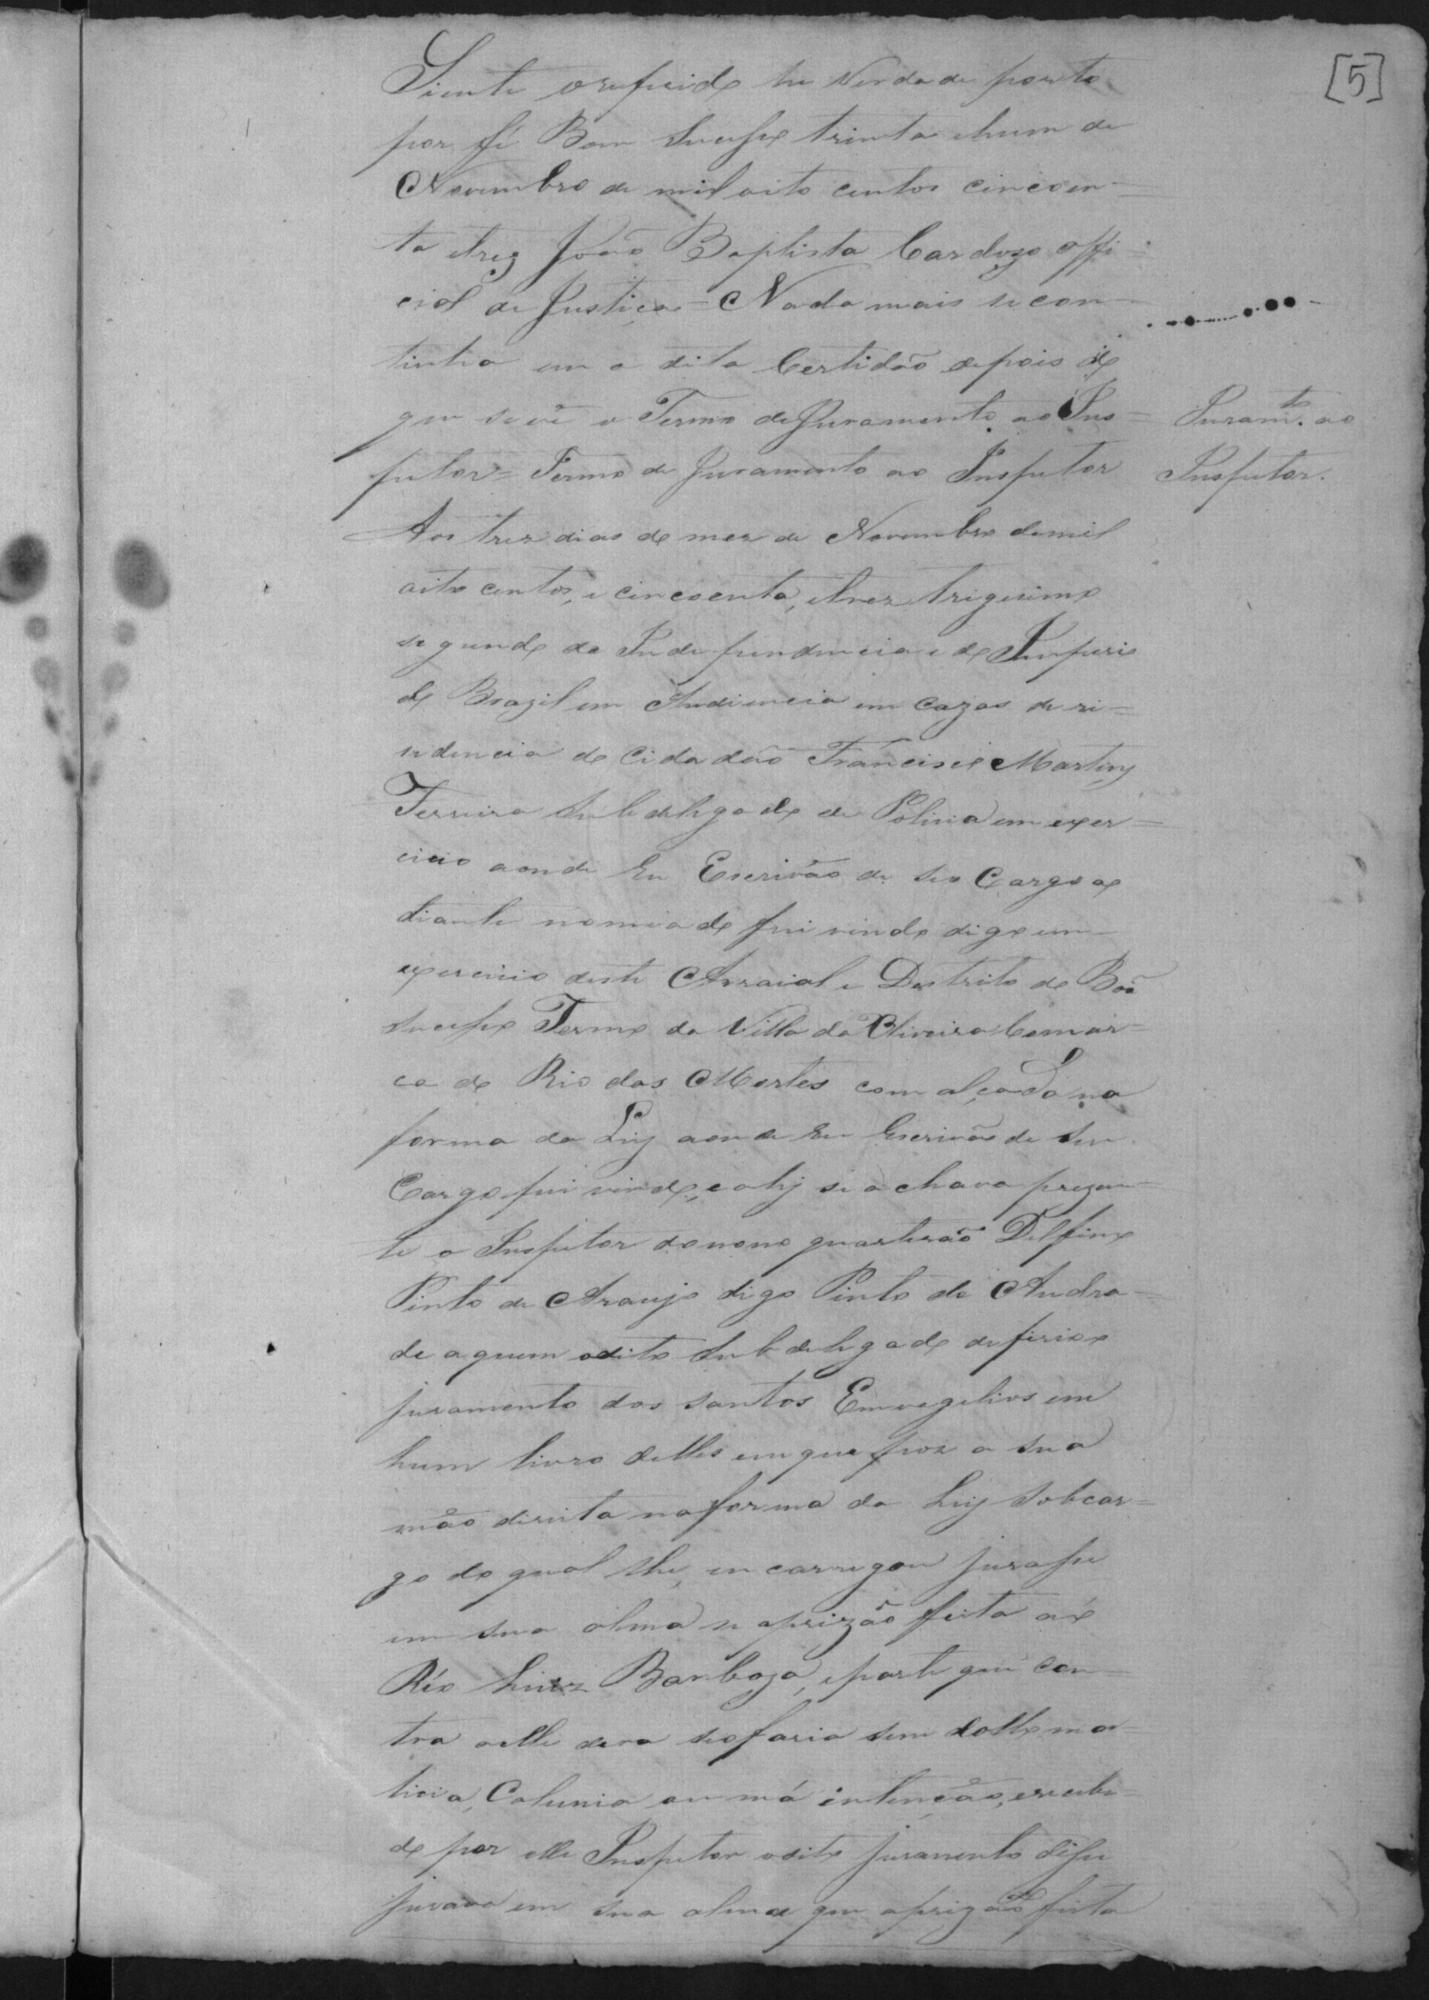 [5]
Siente o referido he verdade porto
por fé Bom Sucesso trinta ehum de
Novembro de mil oito centos cincoen-
ta etrez João Baptista Cardozo offi-
cial de Justiça = Nada mais se con-
tinha em a dita Certidão depois do
que se vê o Termo de Juramento ao Ins-
petor = Termo de Juramento ao Inspetor
Juram.to ao
Inspetor.
Aos trez dias do mez de Novembro demil
oito centos, e cincoenta, etrez trigesimo
segundo da Independencia e do Imperio
do Brazil em Audiencia em cazas de ri-
zidencia do Cidadão Francisco Martins
Ferreira Subdelegado de Policia em exer-
cicio aonde Eu Escrivão de seo Cargo a
diante nomiado fui vindo digo em
exercicio deste Arraial e Destrito do Bom
Sucesso Termo da Villa da Oliveira Comar-
ca do Rio das Mortes com alçada na
forma da Ley aonde Eu Escrivão de seu
Cargo fui vindo, e ahj se achava prezen-
te o Inspetor do nono quarteirão Delfino
Pinto de Araujo digo Pinto de Andra-
de aquem odito Subdelegado deferio o
juramento dos Santos Emvagelios em
hum livro delles emque poz a sua
mão direita naforma da Ley sobcar-
go do qual lhe encarregou jurasse
em sua alma se aprizão feita ao
Réo Luiz Barboza, eparte que con-
tra elle dera seofaria sem dollo ma-
licia, Calunia ou má intenção, erecebi-
do por elle Inspetor odito juramento disse
jurava em sua alma que aprizão feita